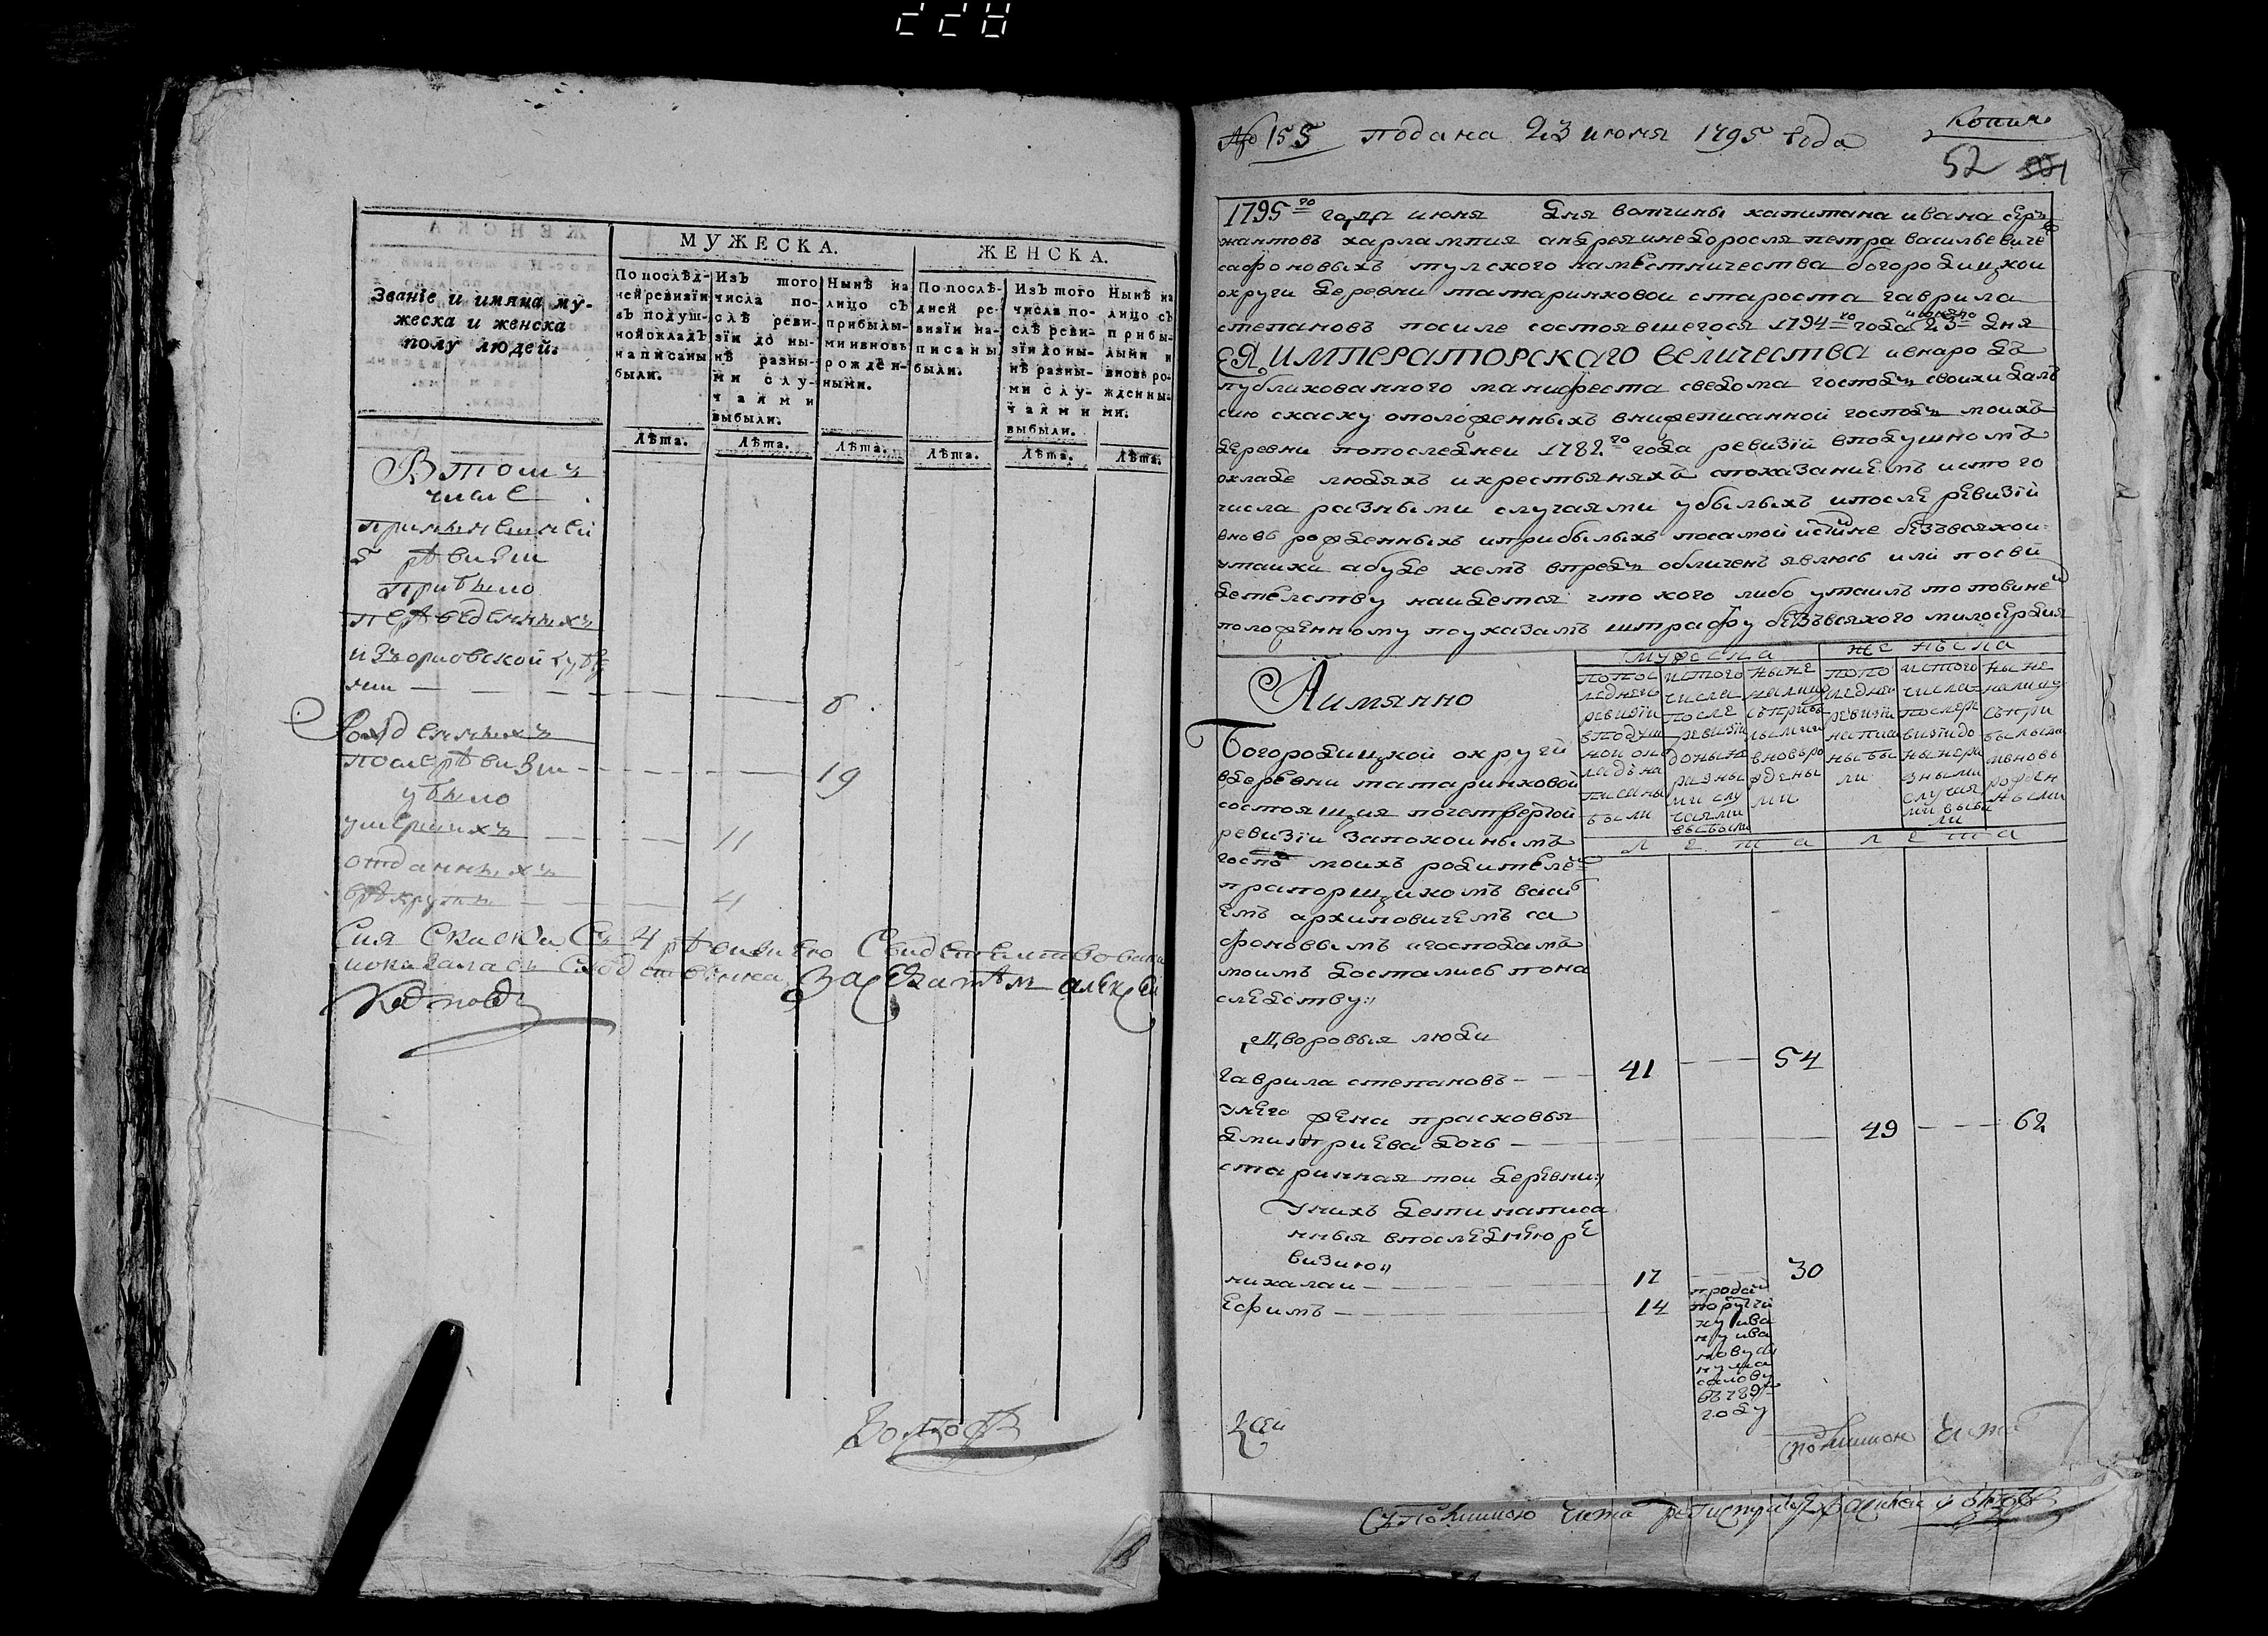 228
Званіе и имяна му-
жеска и женска
полу людей.
МУЖЕСКА.
ЖЕНСКА.
По послѣд-
ней ревизїи
въ подуш-
ной окладъ
написаны
были.
Изъ того
числа по-
слѣ реви-
зїи до ны-
нѣ разны-
ми слу-
чаями
выбыли.
Нынѣ на
лицо съ
прибылы-
ми и вновь
рожден-
ными.
По послѣ-
дней ре-
визїи на-
писаны
были.
Изъ того
числа по-
слѣ реви-
зїи до ны-
нѣ разны-
ми слу-
чаями
выбыли.
Нынѣ на
лицо съ
прибы-
лыми и
вновь ро-
жденны-
ми.
Лѣта. Лѣта. Лѣта. Лѣта. Лѣта. Лѣта.
Втомъ
числе
принынешней
5 рѣвизии
прибыло
перѣведенныхъ
изъ орловской губѣр
нии 6
Рожденныхъ
после рѣвизии 19
убыло
умершихъ 11
отданныхъ
врѣкруты 4
Сия Скаска Съ 4 рѣвизиею Свидетелствована
№ 155 подана 23 июня 1795 года
Копия
52
1795го года июня дня вотчины капитана ивана сер
жантовъ харлампия андрея инедоросля петра васильевиче
сафоновыхъ тулского наместничества богородицкои
округи деревни татаринковои староста гаврила
степановъ посиле состоявшегося 1794го года 23го дня
ЕЯ ИМПЕРАТОРСКАГО ВЕЛИЧЕСТВА ивнародъ
публикованного манифеста сведома господъ своихъ далъ
сию скаску оположенныхъ внижеписанной господъ моихъ
деревни попоследнеи 1782го года ревизїи вподушномъ
окладе людяхъ икрестьяняхъ спохазаниемъ истого
числа разными случаями убылыхъ ипосле ревизїи
вновь рожденныхъ иприбылыхъ посамой истинне безъвсякои
утаики абуде кемъ впредъ обличенъ явлюсь или посви
детелству наидется что кого либо утаилъ то повине
положенному поуказамъ штрафу безъвсякого милосердия
Аимянно
мужеска женска
попос
ледней
ревизїи
вподуш
ной окла
ладъ на
писаны
были
истого
числа
после
ревизїи
доныне
разны
ми слу
чаями
выбыли
ныне
налицо
съприбы
лыми
вновьро
ждены
ми
попо
следней
ревизїи
написа
ны бы
ли
истого
числа
послере
визїидо
ныне ра
зными
случая
ми выбы
ли
ныне
налицо
съпри
былыми
ивновь
рожден
ными
лета лета
Богородицкой округи
вдеревни татаринковой
состоящия почетвертой
ревизїи запокоинымъ
госпо моихъ родителе
прапорщикомъ васил
емъ архиповичемъ са
фоновымъ игосподамъ
моимъ достались пона
следству
Дворовыя люди
гаврила степановъ 41 54
унего жена прасковья
дмитриева дочь 49 62
старинная тои деревни
Унихъ дети написа
нныя впоследнеюре
визию
нихалаи 17 30
Ефимъ 14
продан
поручи
ку ива
ну ива
нову сы
году